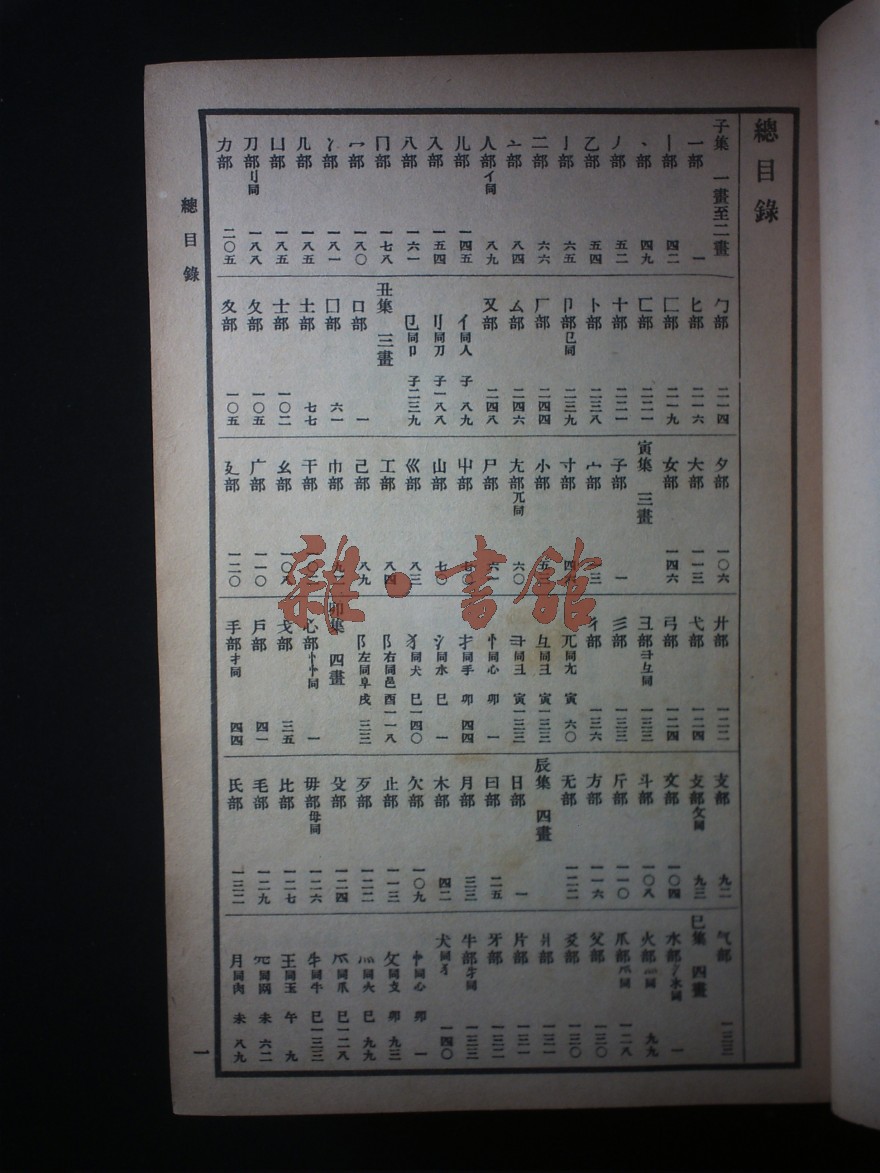 總目錄
子集 一畫至二畫
一部 一
丨部 四二
丶部 四九
丿部 五二
乙部 五四
亅部 六五
二部 六六
亠部 八四
人部亻同 八九
儿部 一四五
入部 一五四
八部 一六一
冂部 一七八
冖部 一八〇
冫部 一八一
几部 一八五
凵部 一八五
刀部刂同 一八八
力部 二〇五
勹部 二一四
匕部 二一六
匚部 二一九
匸部 二二一
十部 二二一
卜部 二三八
卩部㔾同 二三九
厂部 二四四
厶部 二四六
又部 二四八
亻同人 子 八九
刂同刀 子一八八
㔾同卩 子二三九
丑集 三畫
口部 一
囗部 六一
土部 七七
士部 一〇二
夂部 一〇五
夊部 一〇五
夕部 一〇六
大部 一一三
女部 一四六
寅集 三畫
子部 一
宀部
寸部
小部
尢部兀同 六〇
尸部
屮部 七〇
山部 七〇
巛部 八三
工部 八四
己部 八九
巾部
干部
幺部 一〇八
广部 一一〇
廴部 一二〇
廾部 一二二
弋部 一二四
弓部 一二四
彐部彑同 一三三
彡部 一三三
彳部 一三六
兀同尢 寅 六〇
彑同彐 寅一三三
忄同心 卯 一
扌同手 卯 四四
氵同水 巳 一
犭同犬 巳一四〇
阝右同邑 酉一一八
阝左同阜 戌 三三
卯集 四畫
心部忄㣺同 一
戈部 三五
戶部 四一
手部扌同 四四
支部 九二
攴部攵同 九三
文部 一〇四
斗部 一〇八
斤部 一一〇
方部 一一六
无部 一二二
辰集 四畫
日部 一
曰部 二五
月部 三三
木部 四二
欠部 一〇九
止部 一一三
歹部 一二二
殳部 一二四
毋部母同 一二六
比部 一二七
毛部 一二九
氏部 一三二
气部 一三三
巳集 四畫
水部氵氺同 一
火部灬同 九九
爪部爫同 一二八
父部 一三〇
爻部 一三〇
爿部 一三一
片部 一三一
牙部 一三二
牛部牜同 一三三
犬同犭 一四〇
㣺同心 卯 一
攵同攴 卯 九三
灬同火 巳 九九
爫同爪 巳一二八
牜同牛 巳一三三
王同玉 午 九
罓同网 未 六二
月同肉 未 八九
總目錄
一
雜·書館